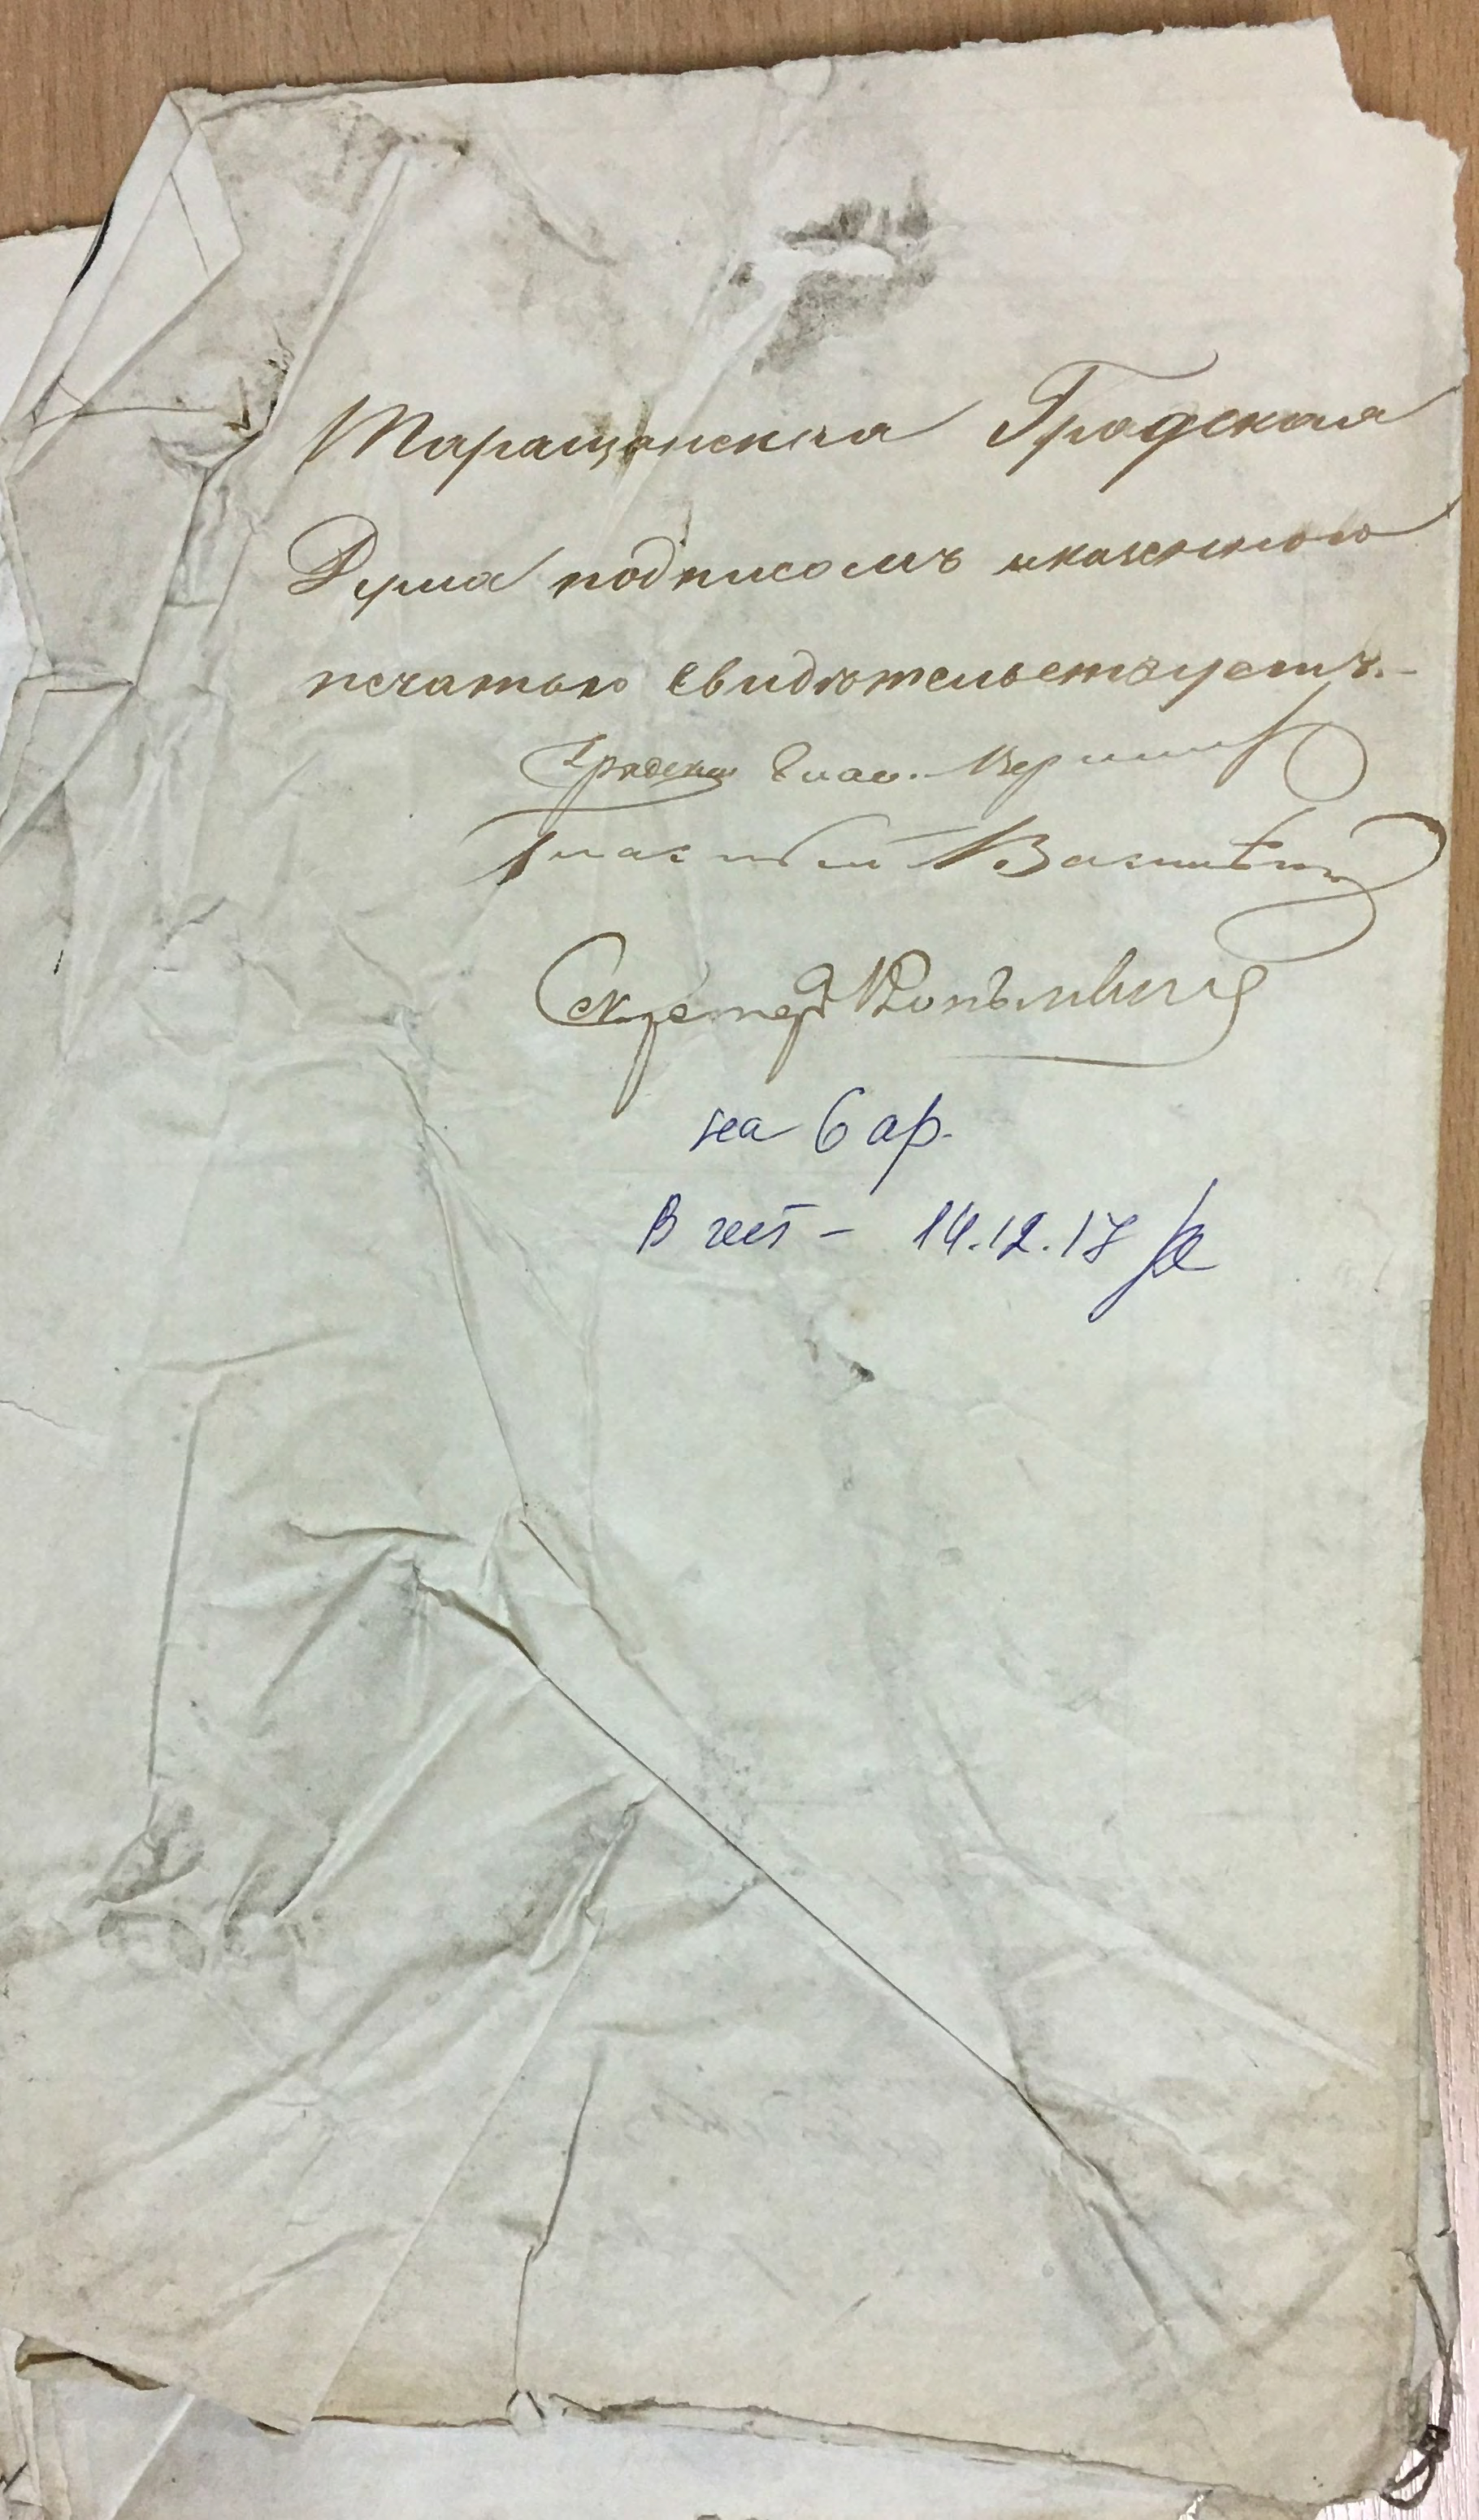 Таращанская Градская
Дума подписомъ и казенною
печатью свидѣтельствуетъ.-
Градский Глав.
Гласный
Секретарь
на 6 ар.
14.12.17